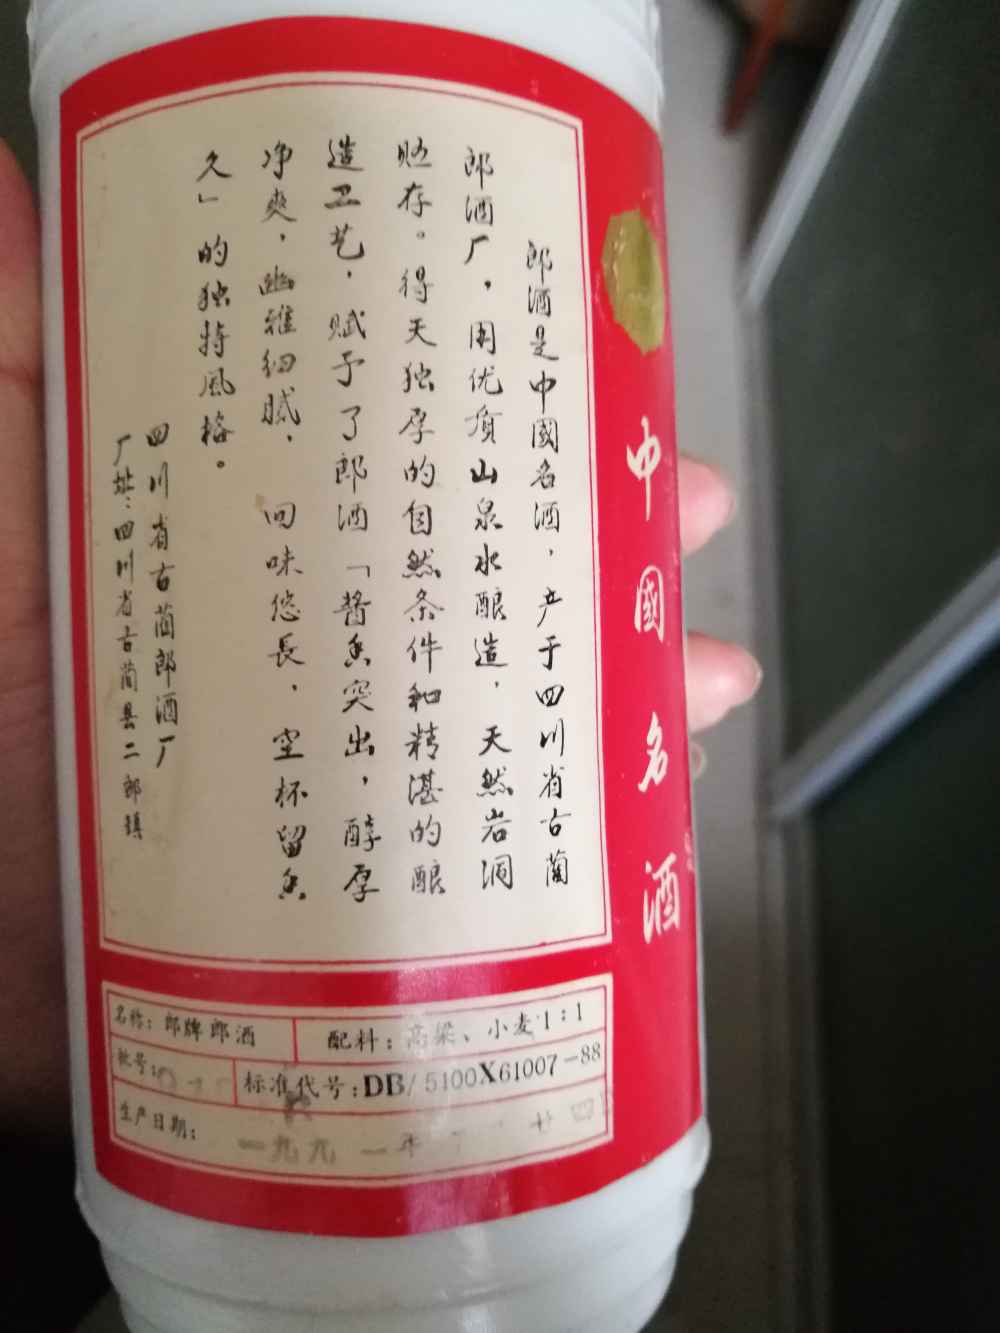 中國名酒
郎酒是中國名酒，产于四川省古蔺
郎酒厂，用优质山泉水酿造，天然岩洞
贮存。得天独厚的自然条件和精湛的酿
造工艺，赋予了郎酒「醬香突出，醇厚
净爽，幽雅细腻，回味悠長，空杯留香
久」的独特風格。
四川省古蔺郎酒厂
厂址：四川省古蔺县二郎镇
名称：郎牌郎酒
配料：高粱、小麦1：1
批号：
标准代号：DB/5100X61007-88
生产日期：一九九一年 廿四日